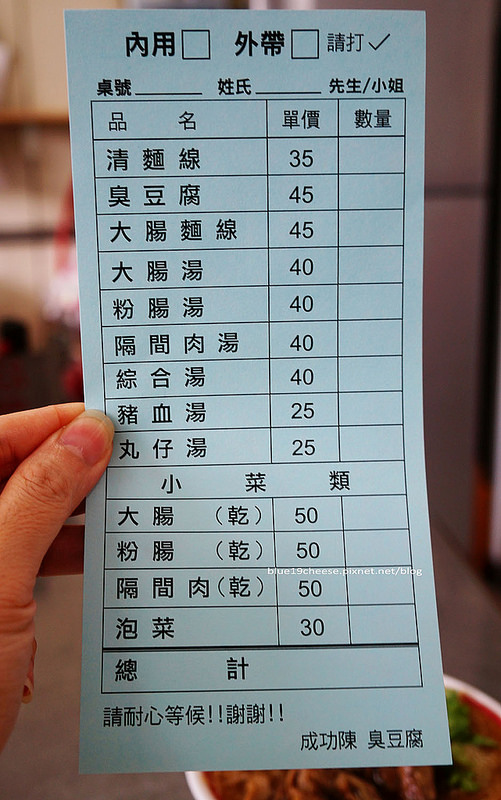 內用□ 外帶□ 請打✓
桌號______ 姓氏______ 先生/小姐
品 名 單價 數量
清麵線 35
臭豆腐 45
大腸麵線 45
大腸湯 40
粉腸湯 40
隔間肉湯 40
綜合湯 40
豬血湯 25
丸仔湯 25
小菜類
大腸（乾） 50
粉腸（乾） 50
blue19cheese.pixnet.net/blog
隔間肉(乾) 50
泡菜 30
總計
請耐心等候!!謝謝!!
成功陳 臭豆腐